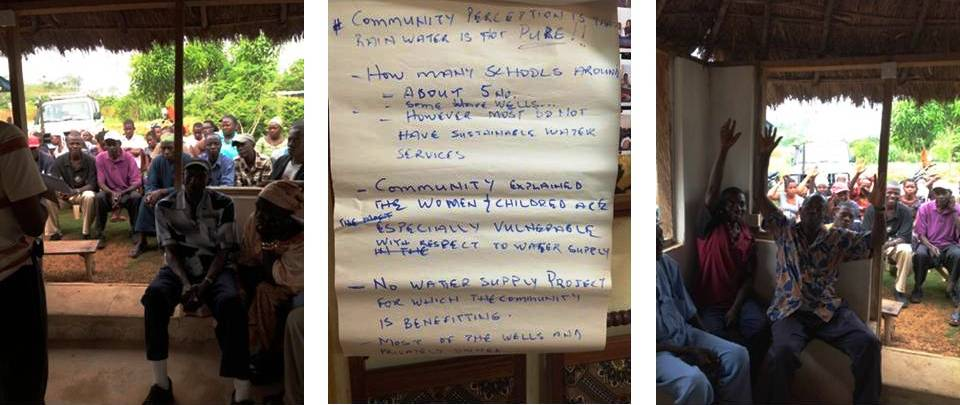 # COMMUNITY PERCEPTION IS THAT
RAIN WATER IS NOT PURE!!
- HOW MANY SCHOOLS AROUND
- ABOUT 5 NO.
- SOME HAVE WELLS...
- HOWEVER MOST DO NOT
HAVE SUSTAINABLE WATER
SERVICES
- COMMUNITY EXPLAINED
THE WOMEN & CHILDREN ARE
THE MOST
ESPECIALLY VULNERABLE
WITH RESPECT TO WATER SUPPLY
IN THE
- NO WATER SUPPLY PROJECT
FOR WHICH THE COMMUNITY
IS BENEFITTING.
- MOST OF THE WELLS AND
PRIVATELY OWNED